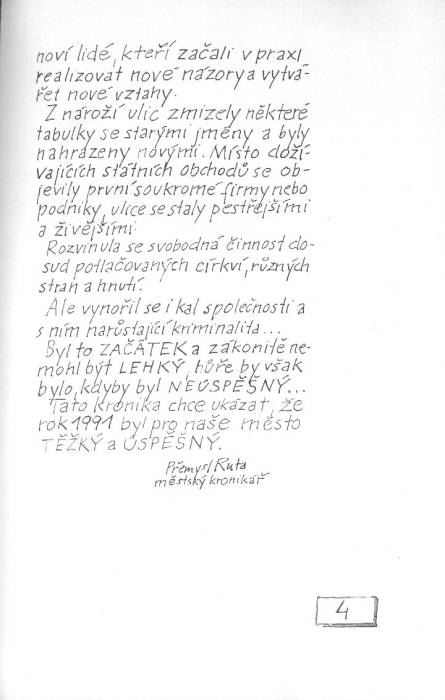 noví lidé, kteří začali v praxi
realizovat nové názory a vytvá-
řet nové vztahy.
Z nároží ulic zmizely některé
tabulky se starými jmény a byly
nahrazeny novými. Místo doží-
vajících státních obchodů se ob-
jevily první soukromé firmy nebo
podniky, ulice se staly pestřejšími
a živějšími.
Rozvinula se svobodná činnost do-
sud potlačovaných církví, různých
stran a hnutí.
Ale vynořil se i kal společnosti a
s ním narůstající kriminalita...
Byl to ZAČÁTEK a zákonitě ne-
mohl být LEHKÝ, hůře by však
bylo, kdyby byl NEÚSPĚŠNÝ...
Tato kronika chce ukázat, že
rok 1991 byl pro naše město
TĚŽKÝ a ÚSPĚŠNÝ.
Přemysl Ruta
městský kronikář
4